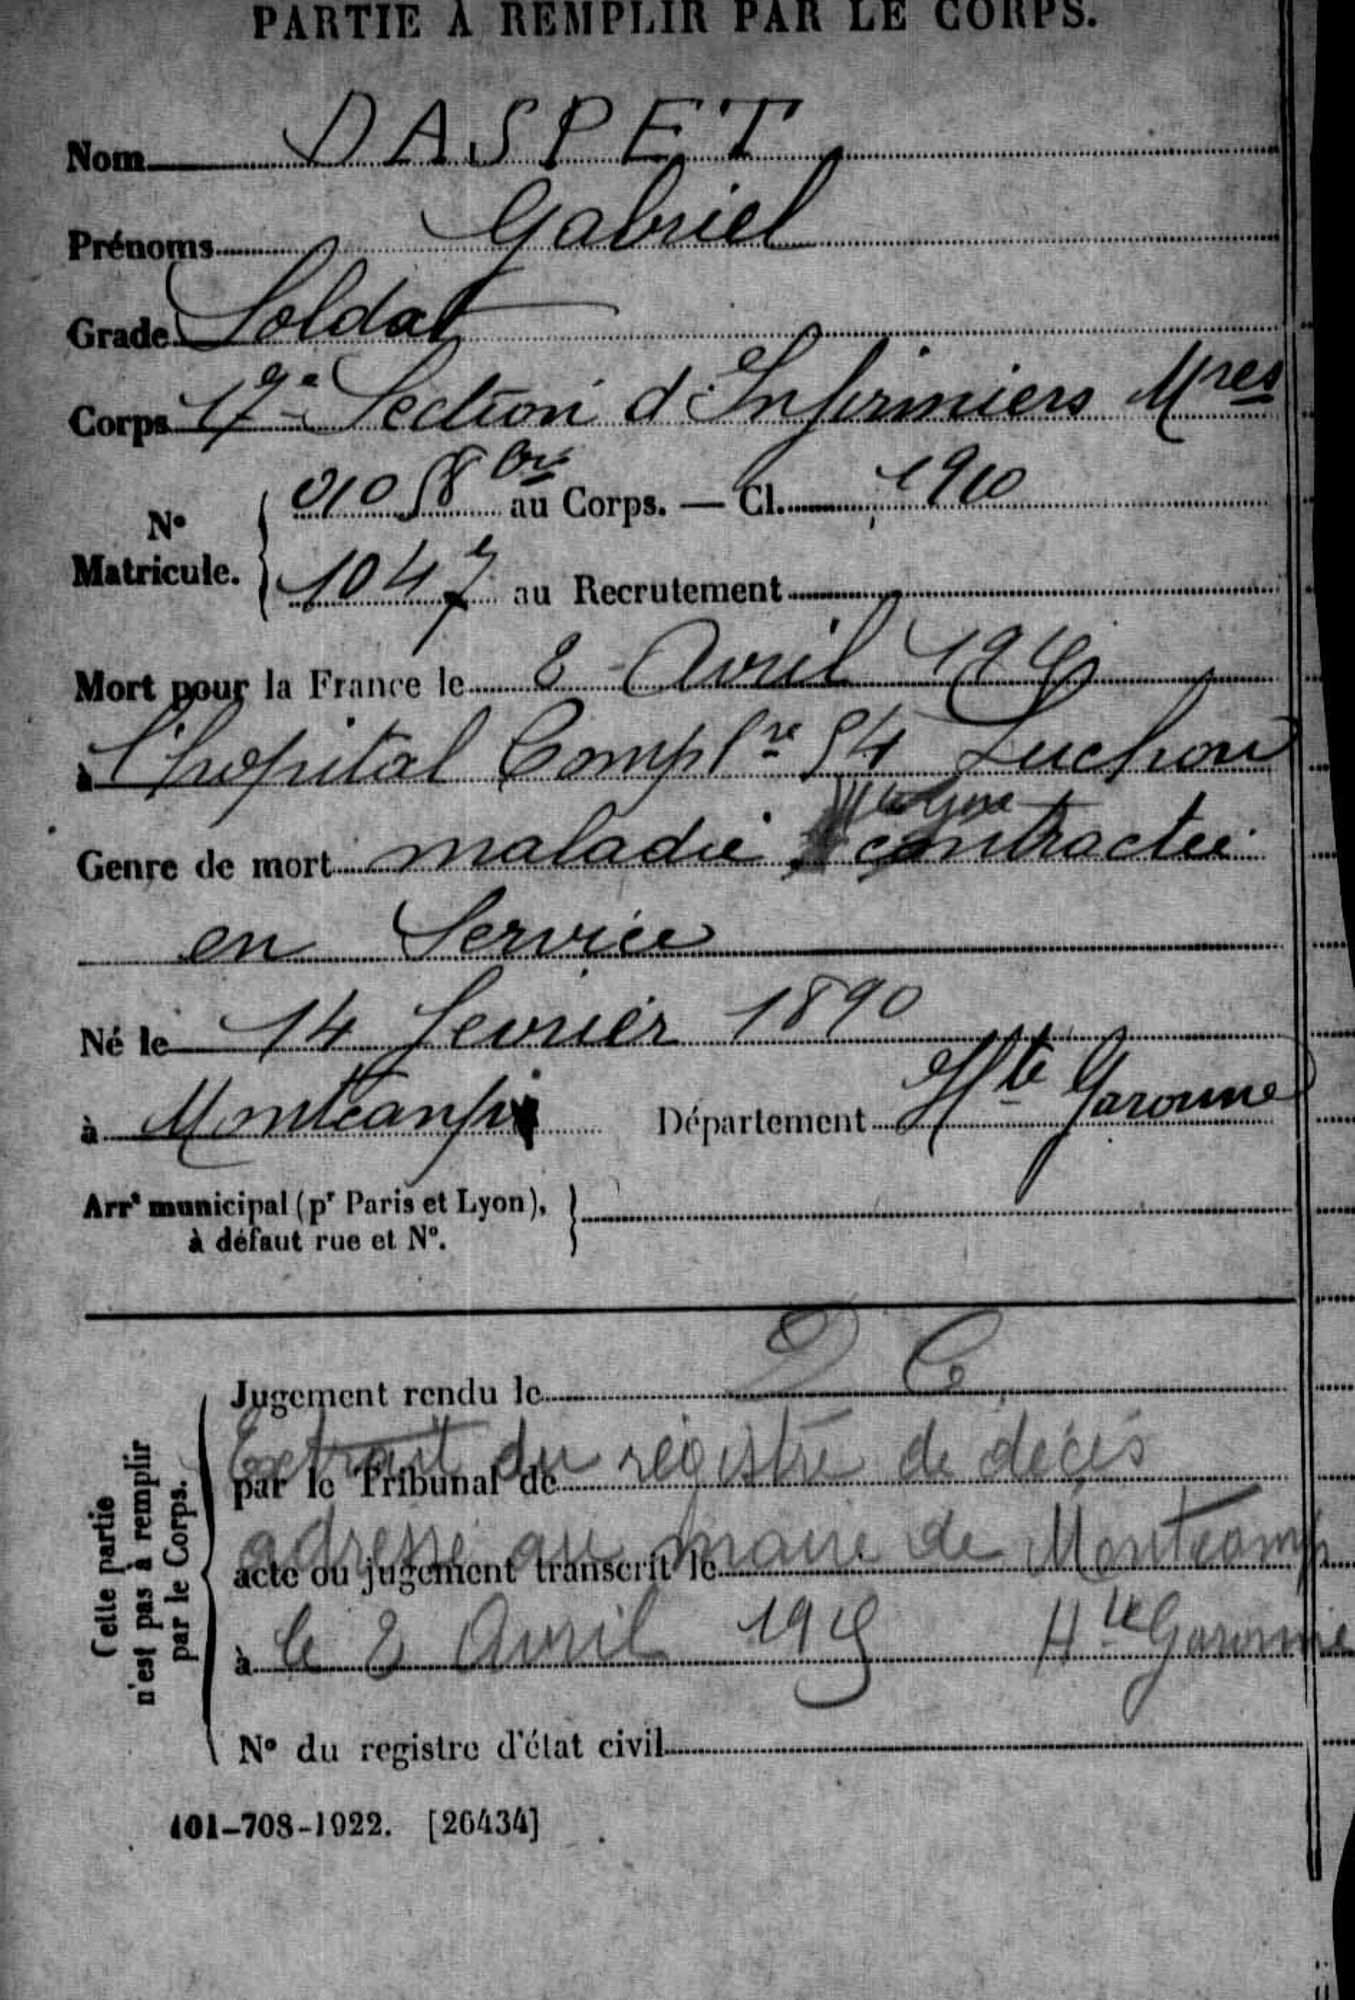 PARTIE À REMPLIR PAR LE CORPS.
Nom DASPET
Prénoms Gabriel
Grade Soldat
Corps 17e Section d'Infirmiers Mres
N° Matricule. 01058 bis au Corps. — Cl. 1910
1047 au Recrutement
Mort pour la France le 2 Avril 1915
à l'hopital Complre 54 Luchon
Genre de mort maladie contractée
en Service
Né le 14 fevrier 1890
à Département Hte Garonne
Arrt municipal (pr Paris et Lyon),
à défaut rue et N°.
Cette partie
n'est pas à remplir
par le Corps.
Jugement rendu le D C
Extrait du registre de décès
par le Tribunal de
adressé au maire de Montcamp
acte ou jugement transcrit le
à le 2 Avril 1915 Hte Garonne
N° du registre d'état civil
101-708-1922. [26434]